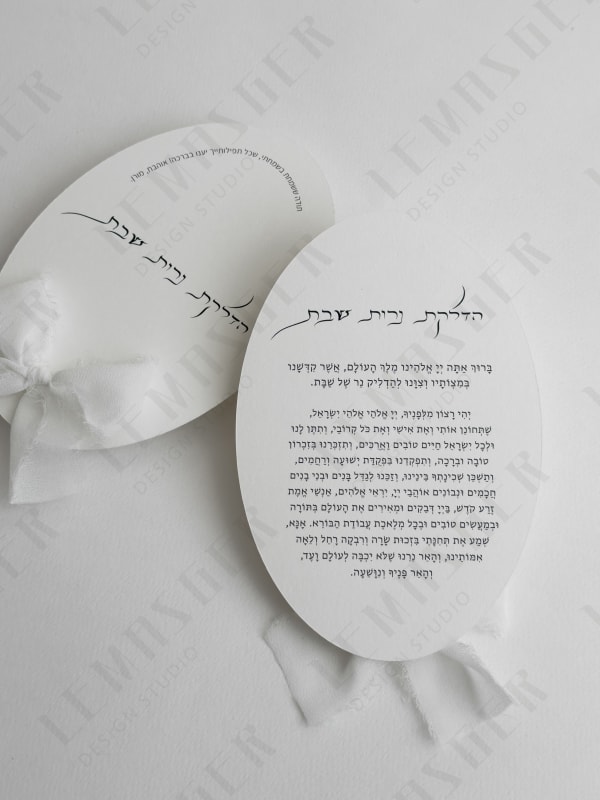 תודה ששמחת בשמחתי, שכל תפילותייך יענו בברכה! אוהבת, מורן.
הדלקת נרות שבת
הדלקת נרות שבת
בָּרוּךְ אַתָּה יְיָ אֱלֹהֵינוּ מֶלֶךְ הָעוֹלָם, אֲשֶׁר קִדְּשָׁנוּ
בְּמִצְוֹתָיו וְצִוָּנוּ לְהַדְלִיק נֵר שֶׁל שַׁבָּת.
יְהִי רָצוֹן מִלְּפָנֶיךָ, יְיָ אֱלֹהַי אֱלֹהֵי יִשְׂרָאֵל,
שֶׁתְּחוֹנֵן אוֹתִי וְאֶת אִישִׁי וְאֶת כֹּל קְרוֹבַי, וְתִתֵּן לָנוּ
וּלְכָל יִשְׂרָאֵל חַיִּים טוֹבִים וַאֲרֻכִּים, וְתִזְכְּרֵנוּ בְּזִכְרוֹן
טוֹבָה וּבְרָכָה, וְתִפְקְדֵנוּ בִּפְקֻדַּת יְשׁוּעָה וְרַחֲמִים,
וְתַשְׁכֵּן שְׁכִינָתְךָ בֵּינֵינוּ, וְזַכֵּנוּ לְגַדֵּל בָּנִים וּבְנֵי בָנִים
חֲכָמִים וּנְבוֹנִים אוֹהֲבֵי יְיָ, יִרְאֵי אֱלֹהִים, אַנְשֵׁי אֱמֶת
זֶרַע קֹדֶשׁ, בַּייָ דְּבֵקִים וּמְאִירִים אֶת הָעוֹלָם בְּתוֹרָה
וּבְמַעֲשִׂים טוֹבִים וּבְכָל מְלֶאכֶת עֲבוֹדַת הַבּוֹרֵא. אָנָּא,
שְׁמַע אֶת תְּחִנָּתִי בִּזְכוּת שָׂרָה וְרִבְקָה רָחֵל וְלֵאָה
אִמּוֹתֵינוּ, וְהָאֵר נֵרֵנוּ שֶׁלֹּא יִכְבֶּה לְעוֹלָם וָעֶד,
וְהָאֵר פָּנֶיךָ וְנִוָּשֵׁעָה.
LEMASGER
DESIGN STUDIO